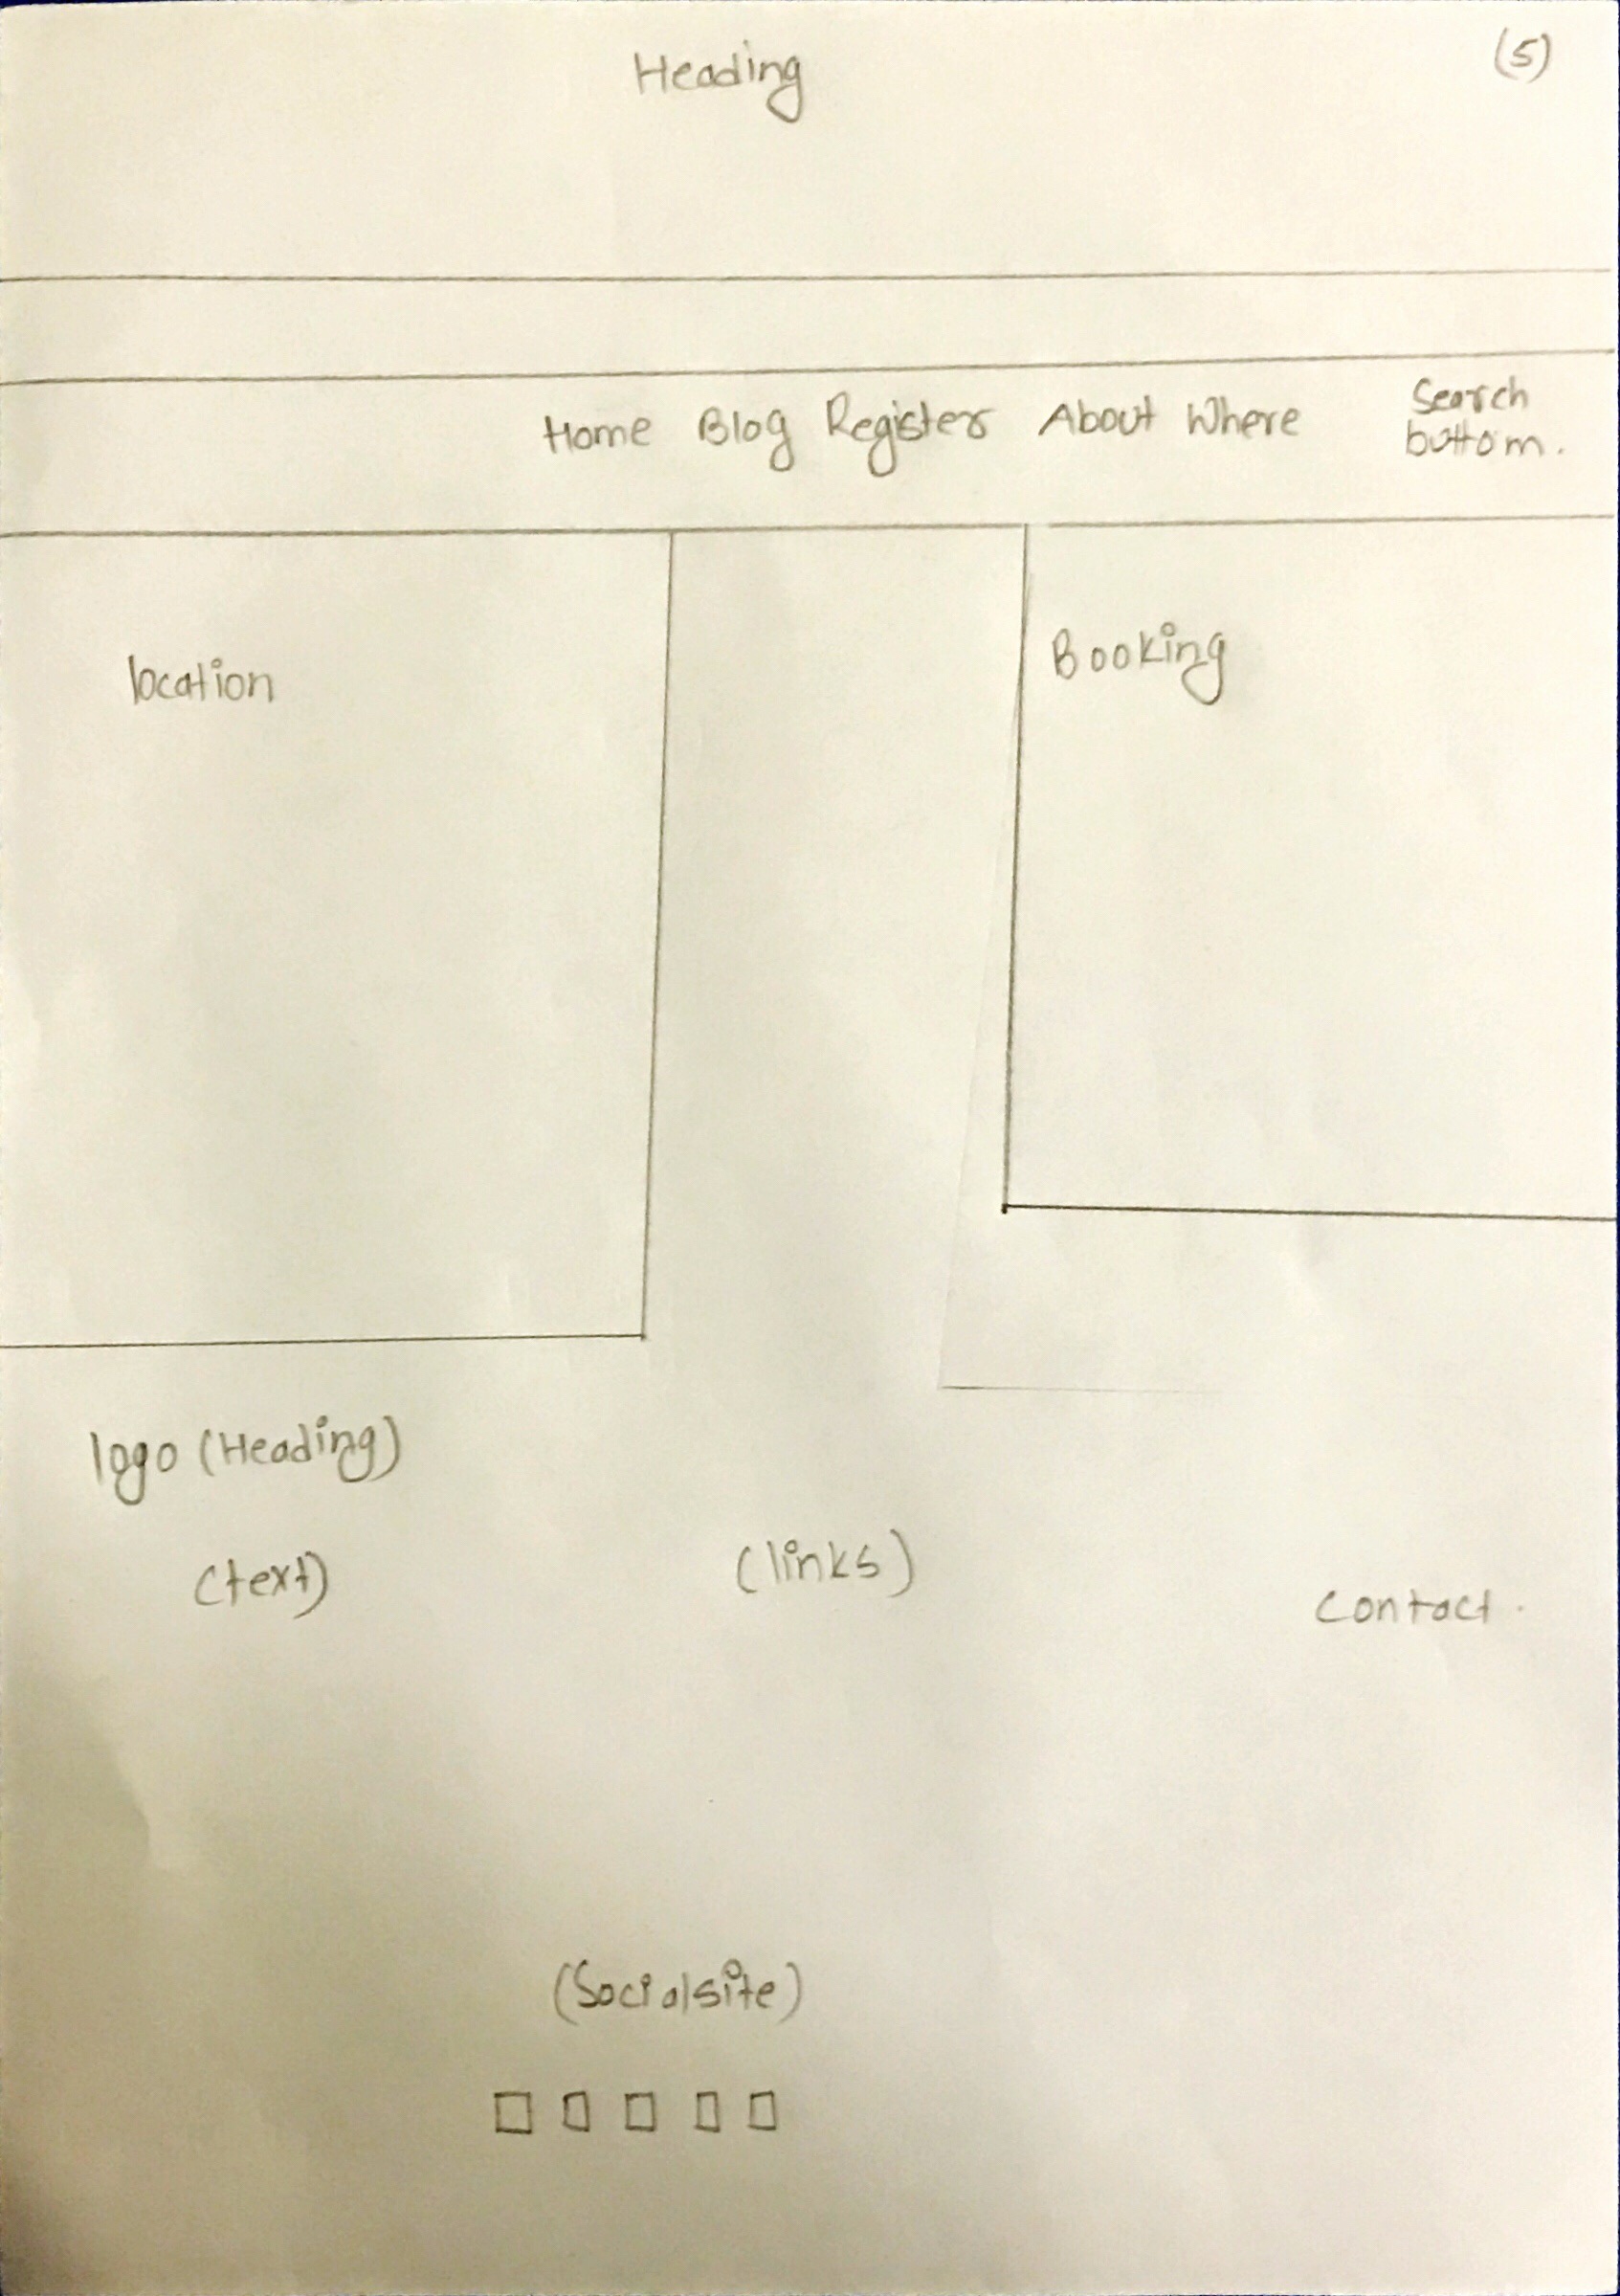 Heading
(5)
Home Blog Register About Where
Search
buttom.
location
Booking
logo (Heading)
(text)
(links)
Contact.
(Socialsite)